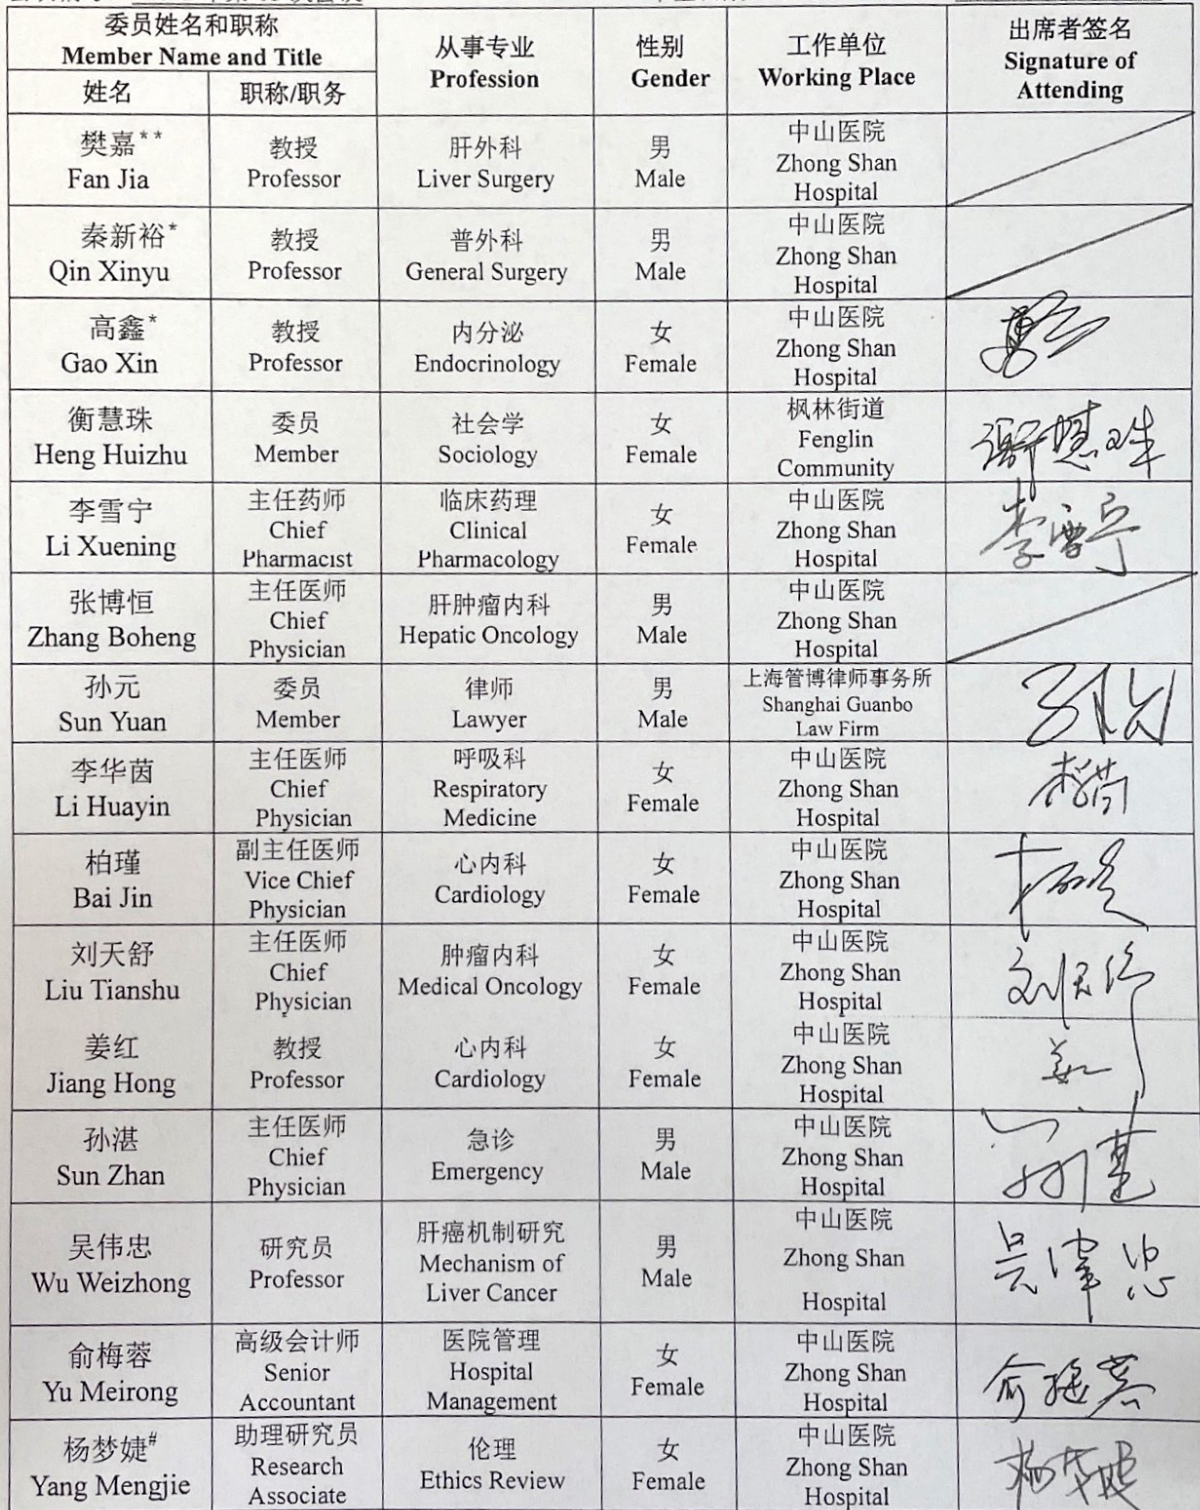 委员姓名和职称
Member Name and Title
姓名
职称/职务
从事专业
Profession
性别
Gender
工作单位
Working Place
出席者签名
Signature of
Attending
樊嘉**
Fan Jia
教授
Professor
肝外科
Liver Surgery
男
Male
中山医院
Zhong Shan
Hospital
秦新裕*
Qin Xinyu
教授
Professor
普外科
General Surgery
男
Male
中山医院
Zhong Shan
Hospital
高鑫*
Gao Xin
教授
Professor
内分泌
Endocrinology
女
Female
中山医院
Zhong Shan
Hospital
衡慧珠
Heng Huizhu
委员
Member
社会学
Sociology
女
Female
枫林街道
Fenglin
Community
李雪宁
Li Xuening
主任药师
Chief
Pharmacist
临床药理
Clinical
Pharmacology
女
Female
中山医院
Zhong Shan
Hospital
李雪宁
张博恒
Zhang Boheng
主任医师
Chief
Physician
肝肿瘤内科
Hepatic Oncology
男
Male
中山医院
Zhong Shan
Hospital
孙元
Sun Yuan
委员
Member
律师
Lawyer
男
Male
上海管博律师事务所
Shanghai Guanbo
Law Firm
李华茵
Li Huayin
主任医师
Chief
Physician
呼吸科
Respiratory
Medicine
女
Female
中山医院
Zhong Shan
Hospital
柏瑾
Bai Jin
副主任医师
Vice Chief
Physician
心内科
Cardiology
女
Female
中山医院
Zhong Shan
Hospital
刘天舒
Liu Tianshu
主任医师
Chief
Physician
肿瘤内科
Medical Oncology
女
Female
中山医院
Zhong Shan
Hospital
刘天舒
姜红
Jiang Hong
教授
Professor
心内科
Cardiology
女
Female
中山医院
Zhong Shan
Hospital
孙湛
Sun Zhan
主任医师
Chief
Physician
急诊
Emergency
男
Male
中山医院
Zhong Shan
Hospital
吴伟忠
Wu Weizhong
研究员
Professor
肝癌机制研究
Mechanism of
Liver Cancer
男
Male
中山医院
Zhong Shan
Hospital
吴伟忠
俞梅蓉
Yu Meirong
高级会计师
Senior
Accountant
医院管理
Hospital
Management
女
Female
中山医院
Zhong Shan
Hospital
俞梅蓉
杨梦婕#
Yang Mengjie
助理研究员
Research
Associate
伦理
Ethics Review
女
Female
中山医院
Zhong Shan
Hospital
杨梦婕